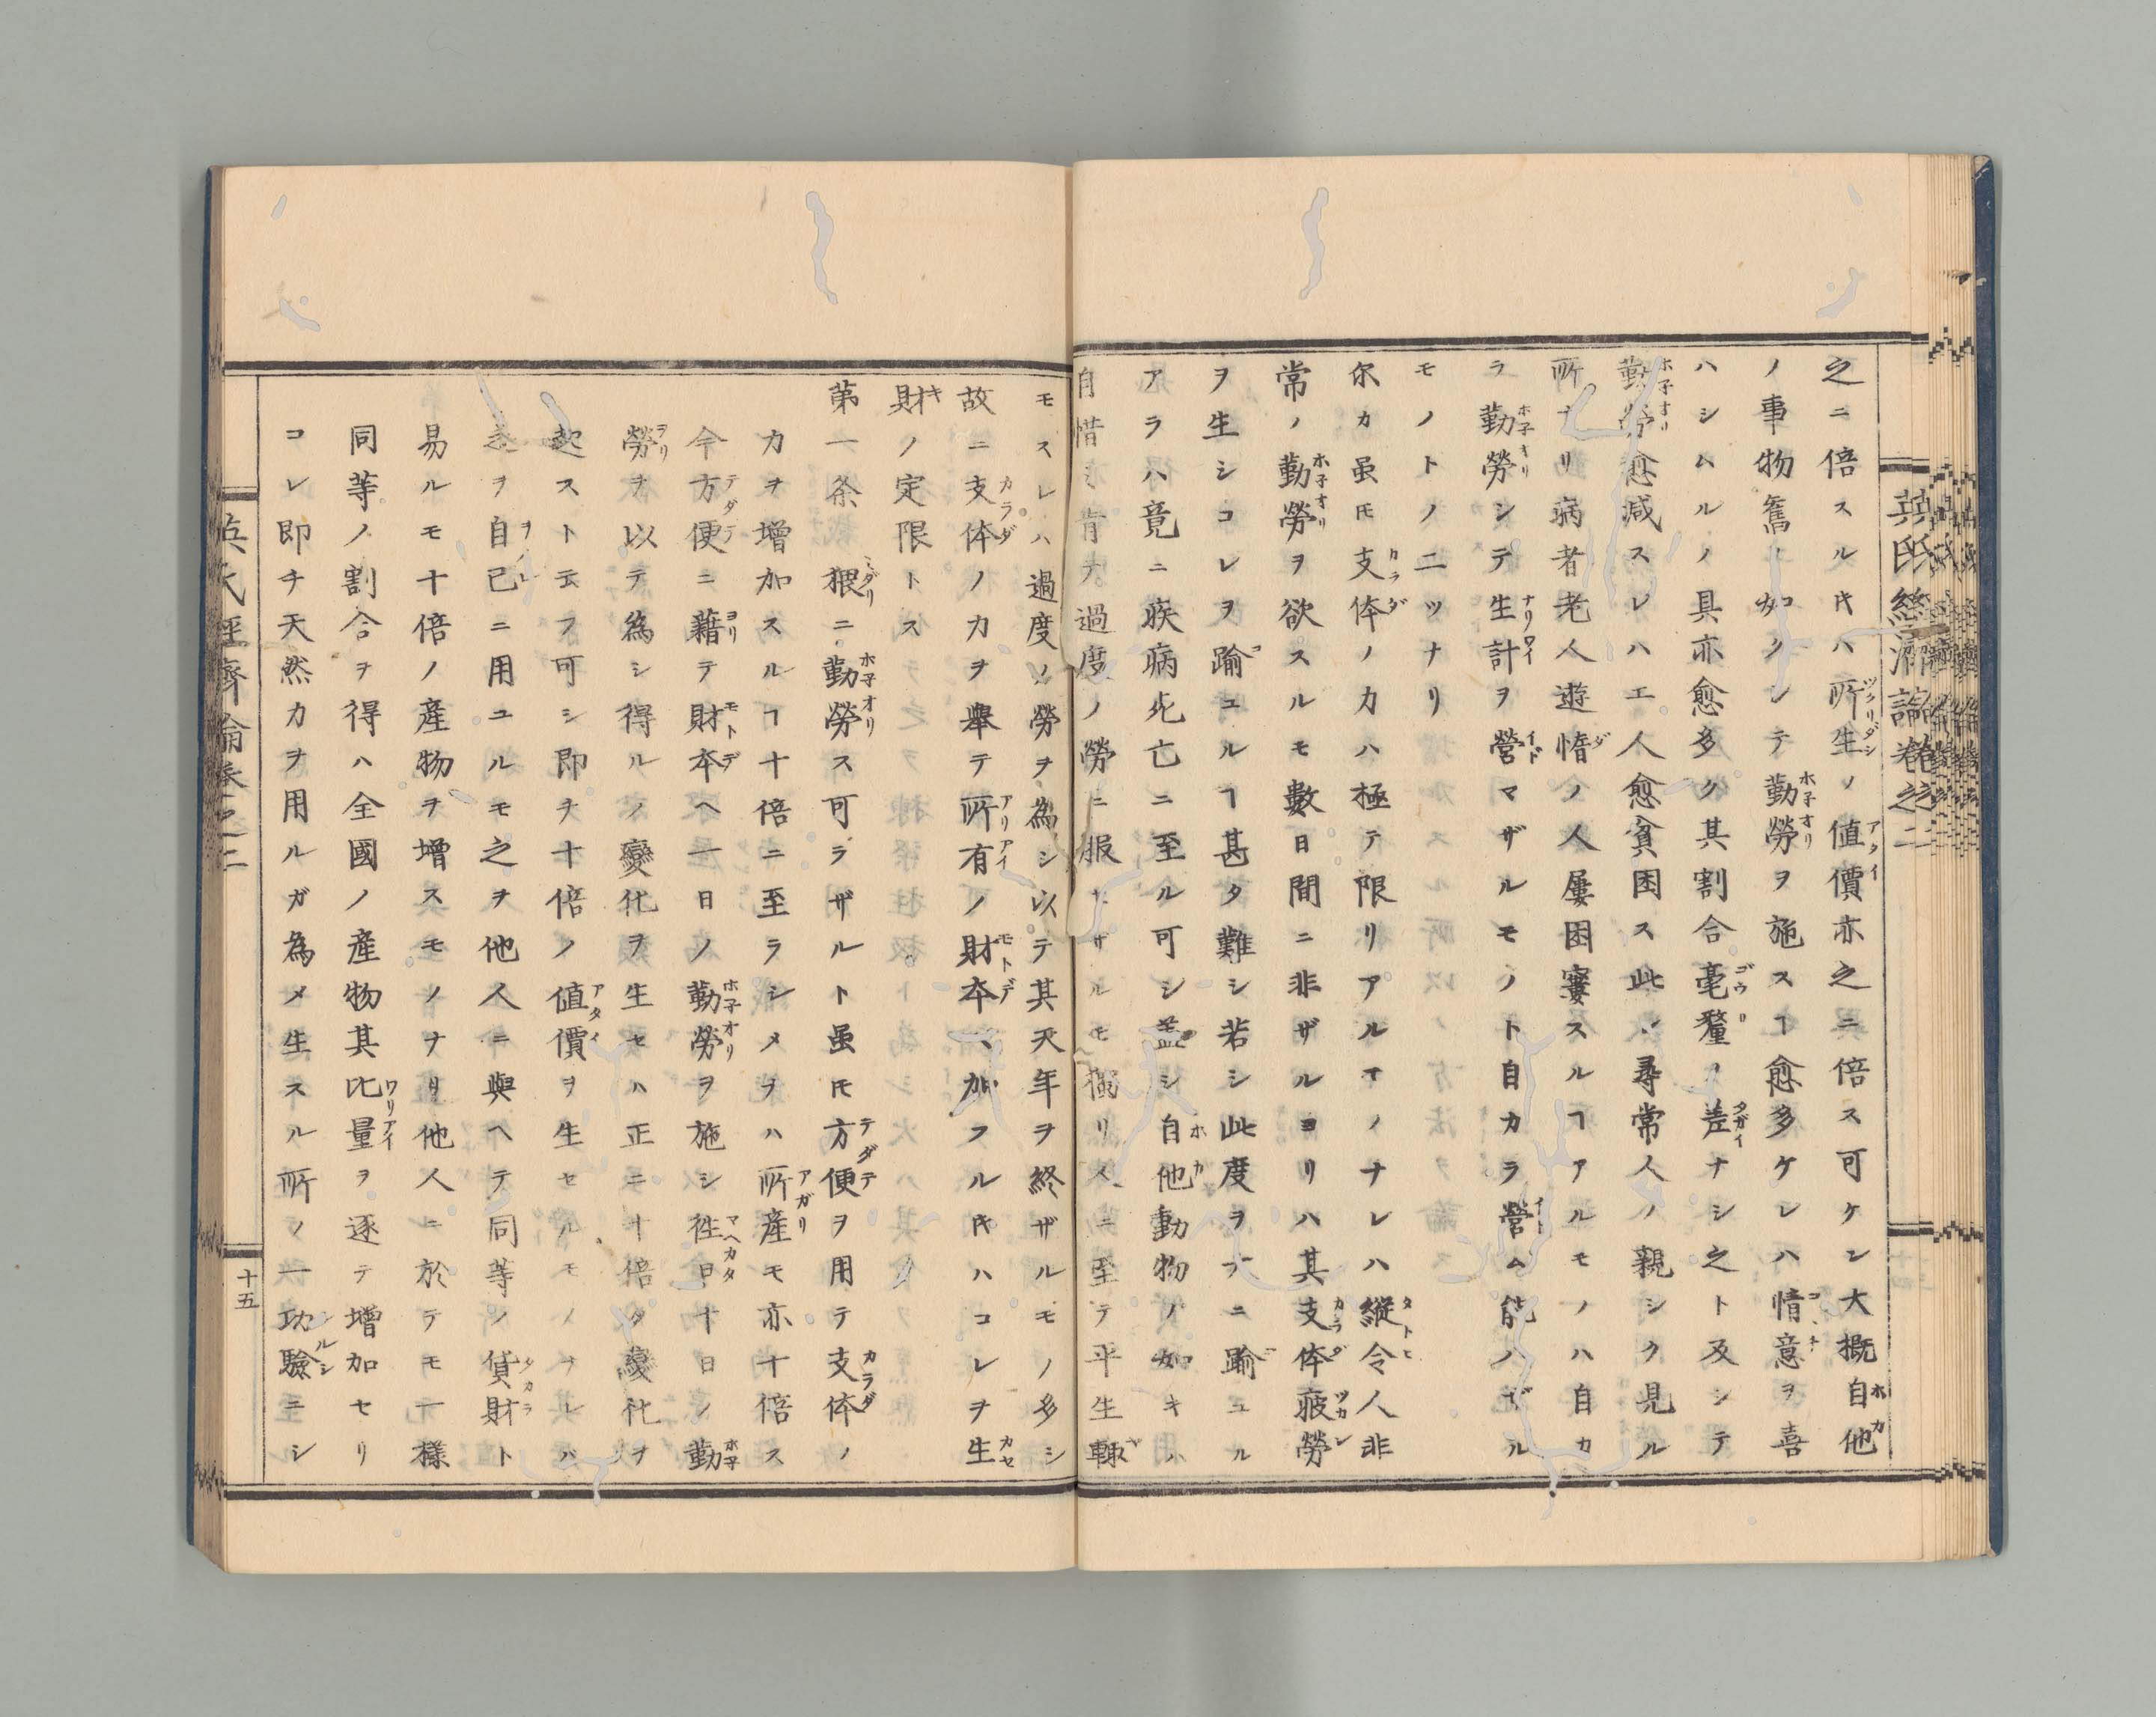 英氏経済論巻之二
之ニ倍スル𪜈ハ所生ノ値價亦之ニ倍ス可ケン大概自他
ノ事物舊ノ如クシテ勤勞ヲ施スヿ愈多ケレハ情意ヲ喜
ハシムルノ具亦愈多ク其割合毫釐ノ差ナシ之ト反シテ
勤勞愈减スレハ工人愈貧困ス此レ尋常人ノ親シク見ル
所ナリ病者老人遊惰ノ人屢困窶スルヿアルモノハ自カ
ラ勤勞シテ生計ヲ營マザルモノト自カラ營ム能ハザル
モノトノ二ツナリ
尓カ虽𪜈支体ノ力ハ極テ限リアルモノナレハ縦令人非
常ノ勤勞ヲ欲スルモ數日間ニ非ザルヨリハ其支体疲勞
ヲ生シコレヲ踰ユルヿ甚タ難シ若シ此度ヲ ニ踰ユル
アラハ竟ニ疾病死亡ニ至ル可シ盖シ自他動物ノ如キハ
自惜ミ肯テ過度ノ勞ニ服セザルモ獨リ人ニ至テ平生輙
モスレハ過度ノ勞ヲ為シ以テ其天年ヲ終ザルモノ多シ
故ニ支体ノ力ヲ舉テ所有ノ財本ヘ加フル𪜈ハコレヲ生
財ノ定限トス
第一条 猥ニ勤勞ス可ラザルト虽𪜈方便ヲ用テ支体ノ
力ヲ増加スルヿ十倍ニ至ラシメヲハ所産モ亦十倍ス
今方便ニ藉テ財本ヘ一日ノ勤勞ヲ施シ徃日十日ノ勤
勞ヲ以テ為シ得ルノ變化ヲ生セハ正ニ十倍タ變化ヲ
起スト云フ可シ即チ十倍ノ値價ヲ生セルモノナレバ
之ヲ自己ニ用ユルモ之ヲ他人ニ與ヘテ同等ノ貨財ト
易ルモ十倍ノ産物ヲ増スモノナリ他人ニ於テモ一樣
同等ノ割合ヲ得ハ全國ノ産物其比量ヲ逐テ増加セリ
コレ即チ天然力ヲ用ルガ為メ生スル所ノ一功驗ニシ
英氏経濟論巻之二
十五